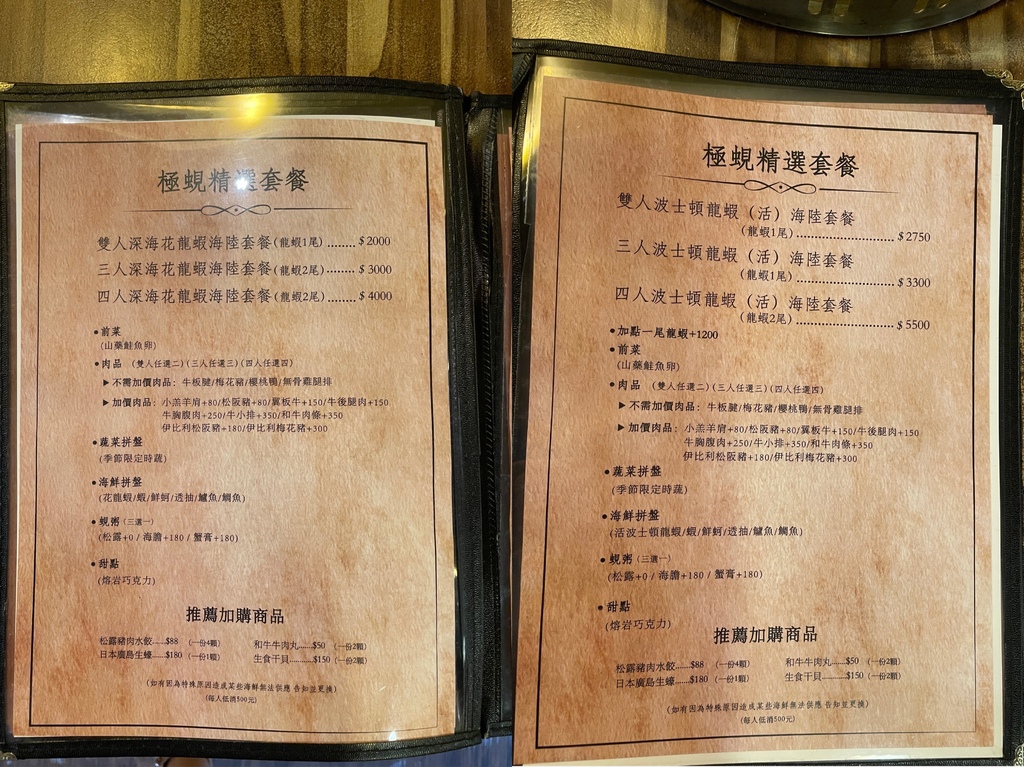 極蜆精選套餐
雙人深海花龍蝦海陸套餐(龍蝦1尾) ........ $2000
三人深海花龍蝦海陸套餐(龍蝦2尾) ........ $ 3000
四人深海花龍蝦海陸套餐(龍蝦2尾) ........ $ 4000
●前菜
(山藥鮭魚卵)
●肉品 (雙人任選二)(三人任選三)(四人任選四)
▶不需加價肉品: 牛板腱/梅花豬/櫻桃鴨/無骨雞腿排
▶加價肉品: 小羔羊肩+80/松阪豬+80/翼板牛+150/牛後腿肉+150
牛胸腹肉+250/牛小排+350/和牛肉條+350
伊比利松阪豬+180/伊比利梅花豬+300
●蔬菜拼盤
(季節限定時蔬)
●海鮮拼盤
(花龍蝦/蝦/鮮蚵/透抽/鱸魚/鯛魚)
●蜆粥(三選一)
(松露+0 / 海膽+180 / 蟹膏+180)
●甜點
(熔岩巧克力)
推薦加購商品
松露豬肉水餃.......$88 (一份4顆) 和牛牛肉丸......$50 (一份2顆)
日本廣島生蠔.......$180 (一份1顆) 生食干貝...........$150 (一份2顆)
(如有因為特殊原因造成某些海鮮無法供應 告知並更換)
(每人低消500元)
極蜆精選套餐
雙人波士頓龍蝦(活)海陸套餐
(龍蝦1尾) ........................ $ 2750
三人波士頓龍蝦(活)海陸套餐
(龍蝦1尾) ........................ $ 3300
四人波士頓龍蝦(活)海陸套餐
(龍蝦2尾) ........................ $ 5500
●加點一尾龍蝦+1200
●前菜
(山藥鮭魚卵)
●肉品 (雙人任選二)(三人任選三)(四人任選四)
▶不需加價肉品: 牛板腱/梅花豬/櫻桃鴨/無骨雞腿排
▶加價肉品: 小羔羊肩+80/松阪豬+80/翼板牛+150/牛後腿肉+150
牛胸腹肉+250/牛小排+350/和牛肉條+350
伊比利松阪豬+180/伊比利梅花豬+300
●蔬菜拼盤
(季節限定時蔬)
●海鮮拼盤
(活波士頓龍蝦/蝦/鮮蚵/透抽/鱸魚/鯛魚)
●蜆粥(三選一)
(松露+0 / 海膽+180 / 蟹膏+180)
●甜點
(熔岩巧克力)
推薦加購商品
松露豬肉水餃.......$88 (一份4顆) 和牛牛肉丸......$50 (一份2顆)
日本廣島生蠔.......$180 (一份1顆) 生食干貝...........$150 (一份2顆)
(如有因為特殊原因造成某些海鮮無法供應 告知並更換)
(每人低消500元)